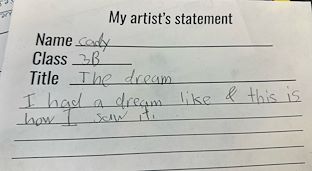 My artist's statement
Name cody
Class 3B
Title The dream
I had a dream like & this is
how I saw it.